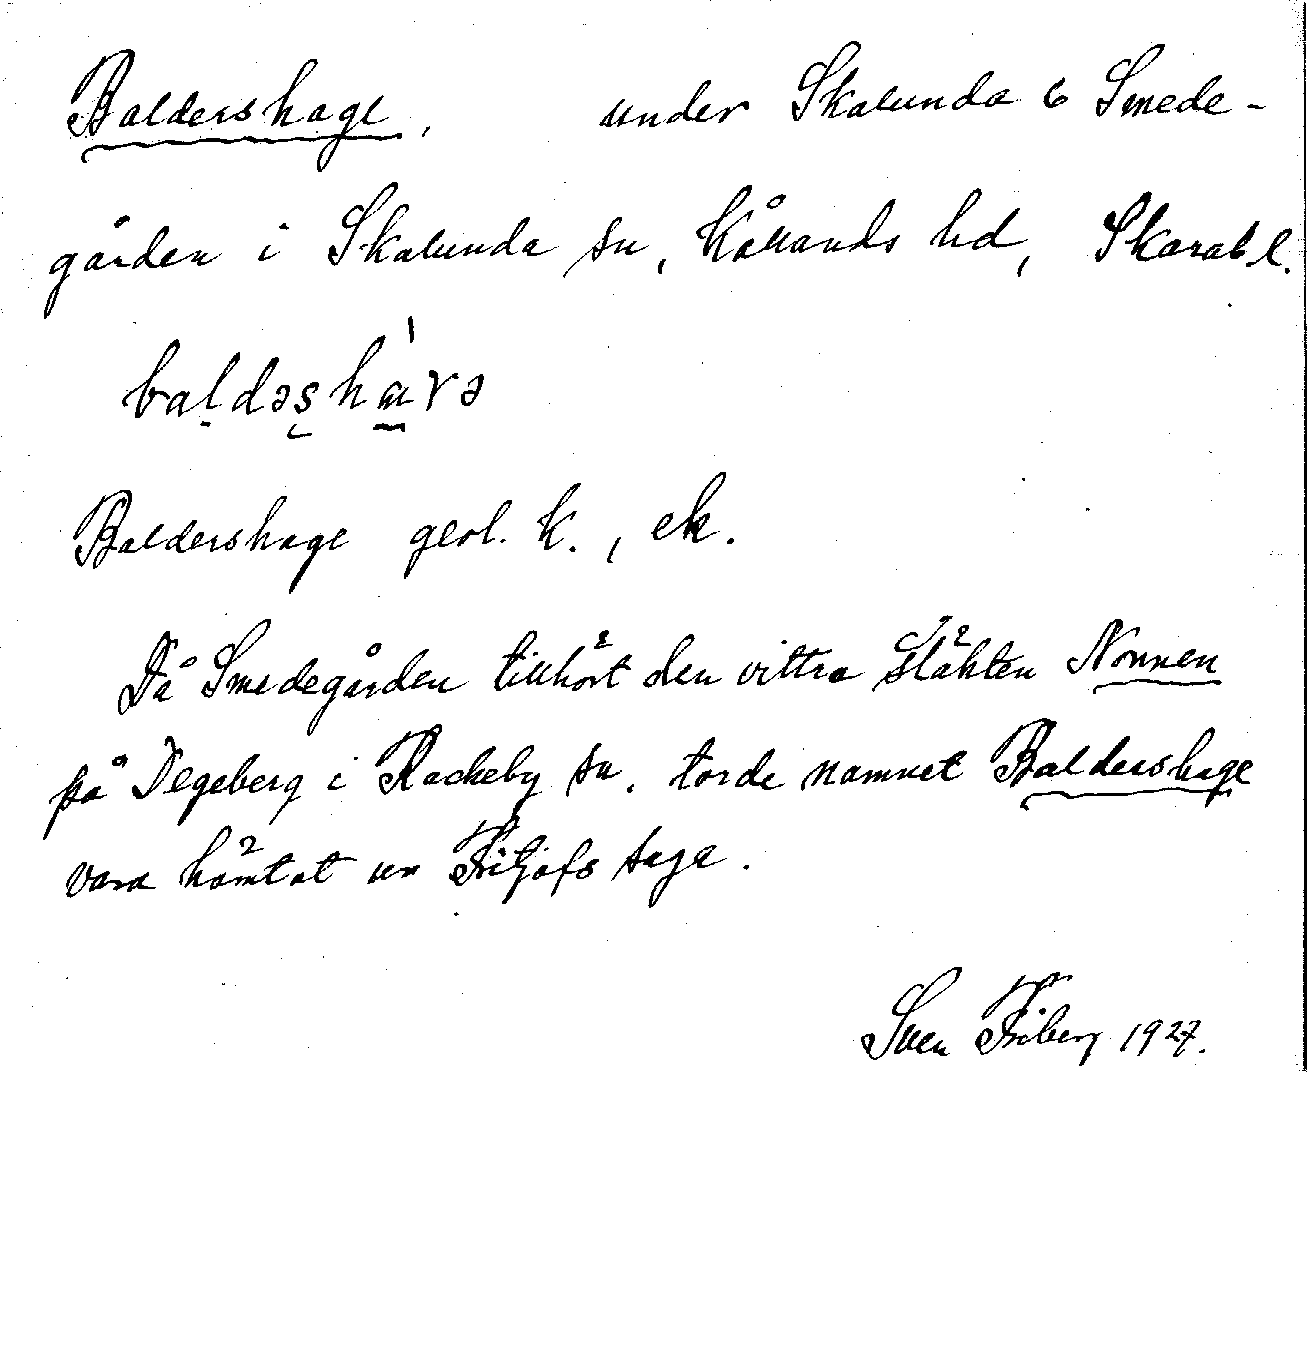 Baldershage, under Skalunda 6 Smede-
gården i Skalunda sn, Kållands hd, Skarab.l.
baldəʂhàvə
Baldershage geol. k., ek.
Då Smedegården tillhört den vittra släkten Nonnen
på Degeberg i Rackeby sn, torde namnet Baldershage
vara hämtat ur Fritjofs saga.
Sven Friberg 1927.